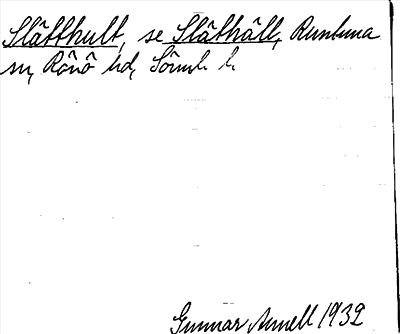 Slätthult, se Släthäll, Runtuna
sn, Rönö hd, Sörml. l.
Gunnar Arnell 1932